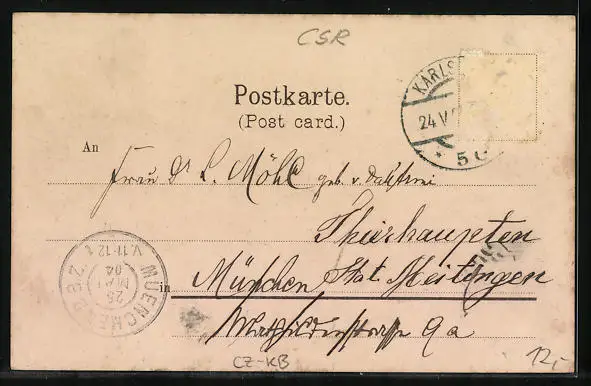 CSR
Postkarte.
(Post card.)
KARLS
24 V
* 5 (
An
Frau Dr L. Möhl geb. v.
Thierhaupten
in München Stat. Meitingen
Mathildenstrasse 9a
MUENCHEN B.B.Z.
25
MAI
04
V. 11-12
CZ-KB
12,-